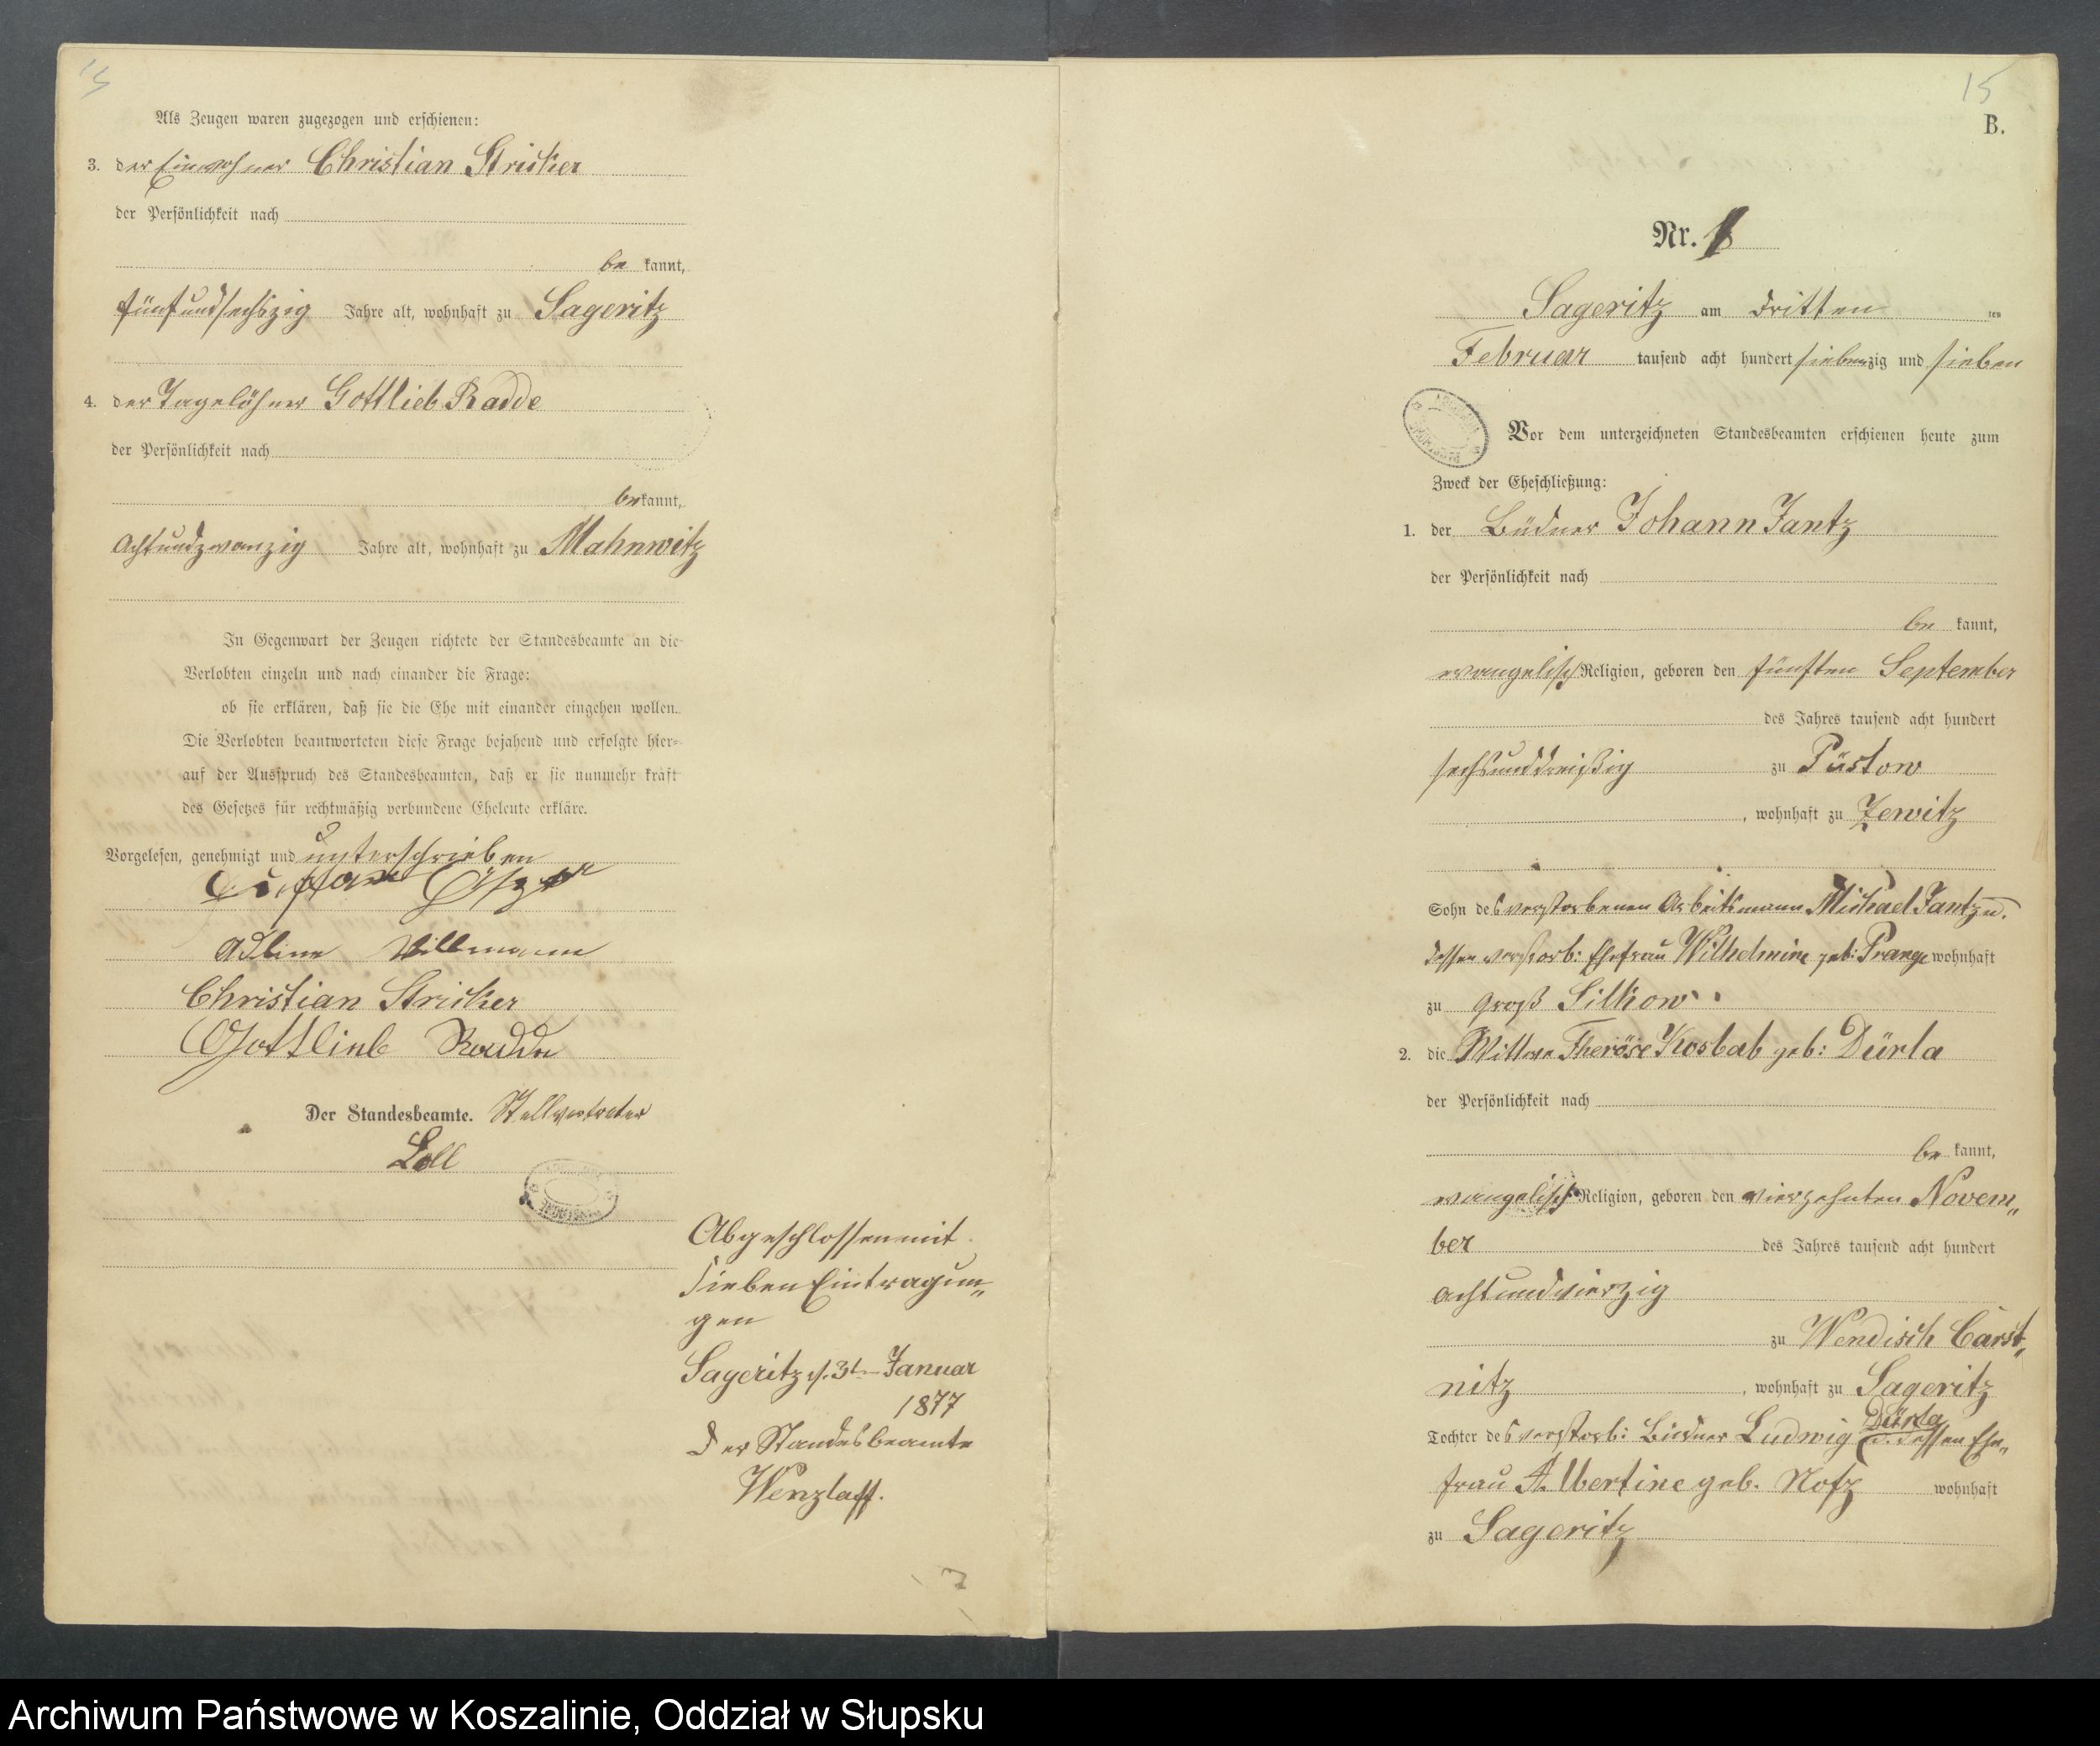 Als Zeugen waren zugezogen und erschienen:
3. der Einwohner Christian Stricker
der Persönlichkeit nach
be kannt,
fünfundsechszig Jahre alt, wohnhaft zu Sageritz
4. der Tagelöhner Gottlieb Radde
der Persönlichkeit nach
be kannt,
achtundzwanzig Jahre alt, wohnhaft zu Mahnwitz
In Gegenwart der Zeugen richtete der Standesbeamte an die
Verlobten einzeln und nach einander die Frage:
ob sie erklären, daß sie die Ehe mit einander eingehen wollen.
Die Verlobten beantworteten diese Frage bejahend und erfolgte hier-
auf der Ausspruch des Standesbeamten, daß er sie nunmehr kraft
des Gesetzes für rechtmäßig verbundene Eheleute erkläre.
Vorgelesen, genehmigt und unterschrieben
Adline Villmann
Christian Stricker
Gottlieb Radde
Der Standesbeamte. Stellvertreter
Loll
Abgeschlossen mit
sieben Eintragun„
gen
Sageritz d. 3t Januar
1877
Der Standesbeamte
Wenzlaff.
15
B.
Nr. 1
Sageritz am dritten ten
Februar tausend acht hundert siebenzig und sieben
Vor dem unterzeichneten Standesbeamten erschienen heute zum
Zweck der Eheschließung:
1. der Büdner Johann Jantz
der Persönlichkeit nach
be kannt,
evangelisch Religion, geboren den fünften September
des Jahres tausend acht hundert
sechsunddreißig zu Püstow
, wohnhaft zu Zewitz
Sohn des verstorbenen Arbeitsmann Michael Jantz u.
dessen verstorb: Ehefrau Wilhelmine geb: Prange wohnhaft
zu Groß Silkow
2. die Wittwe Therese Kosbab geb: Dürla
der Persönlichkeit nach
be kannt,
evangelisch Religion, geboren den vierzehnten Novem„
ber des Jahres tausend acht hundert
achtundvierzig
zu Wendisch Carst„
nitz , wohnhaft zu Sageritz
Dürla
Tochter des verstorb: Büdner Ludwig u. dessen Ehe„
frau Albertine geb. Notz wohnhaft
zu Sageritz
Archiwum Państwowe w Koszalinie, Oddział w Słupsku